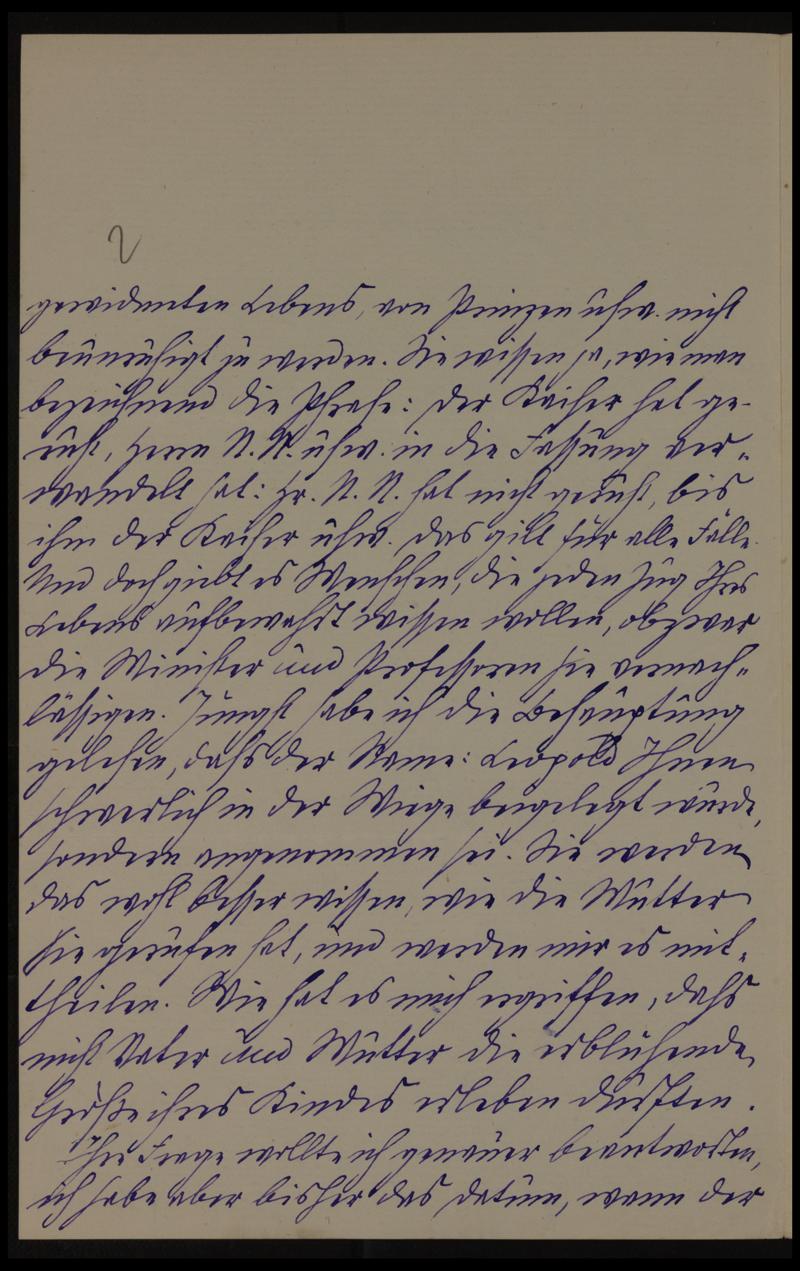 2
gewidmeten Lebens, von Prinzen usw. nicht
beunruhigt zu werden. Sie wissen ja, wie man
bezeichnend die Phrase: der Kaiser hat ge-
ruht, Herrn N. N. usw. in die Fassung ver-
wandelt hat: Hr. N. N. hat nicht geruht, bis
ihm der Kaiser usw. Das gilt für alle Fälle.
Und doch giebt es Menschen, die jeden Zug Ihres
Lebens aufbewahrt wissen wollen, obzwar
die Minister und Professoren sie vernach-
lässigen. Jüngst habe ich die Behauptung
gelesen, dass der Name: Leopold Ihnen
schwerlich in der Wiege beigelegt wurde,
sondern angenommen sei. Sie werden
das wohl besser wissen, wie die Mutter
Sie gerufen hat, und werden mir es mit-
theilen. Wie hat es mich ergriffen, dass
nicht Vater und Mutter die erblühende
Größe ihres Kindes erleben durften.
Ihre Frage wollte ich genauer beantworten,
ich habe aber bisher das Datum, wann der